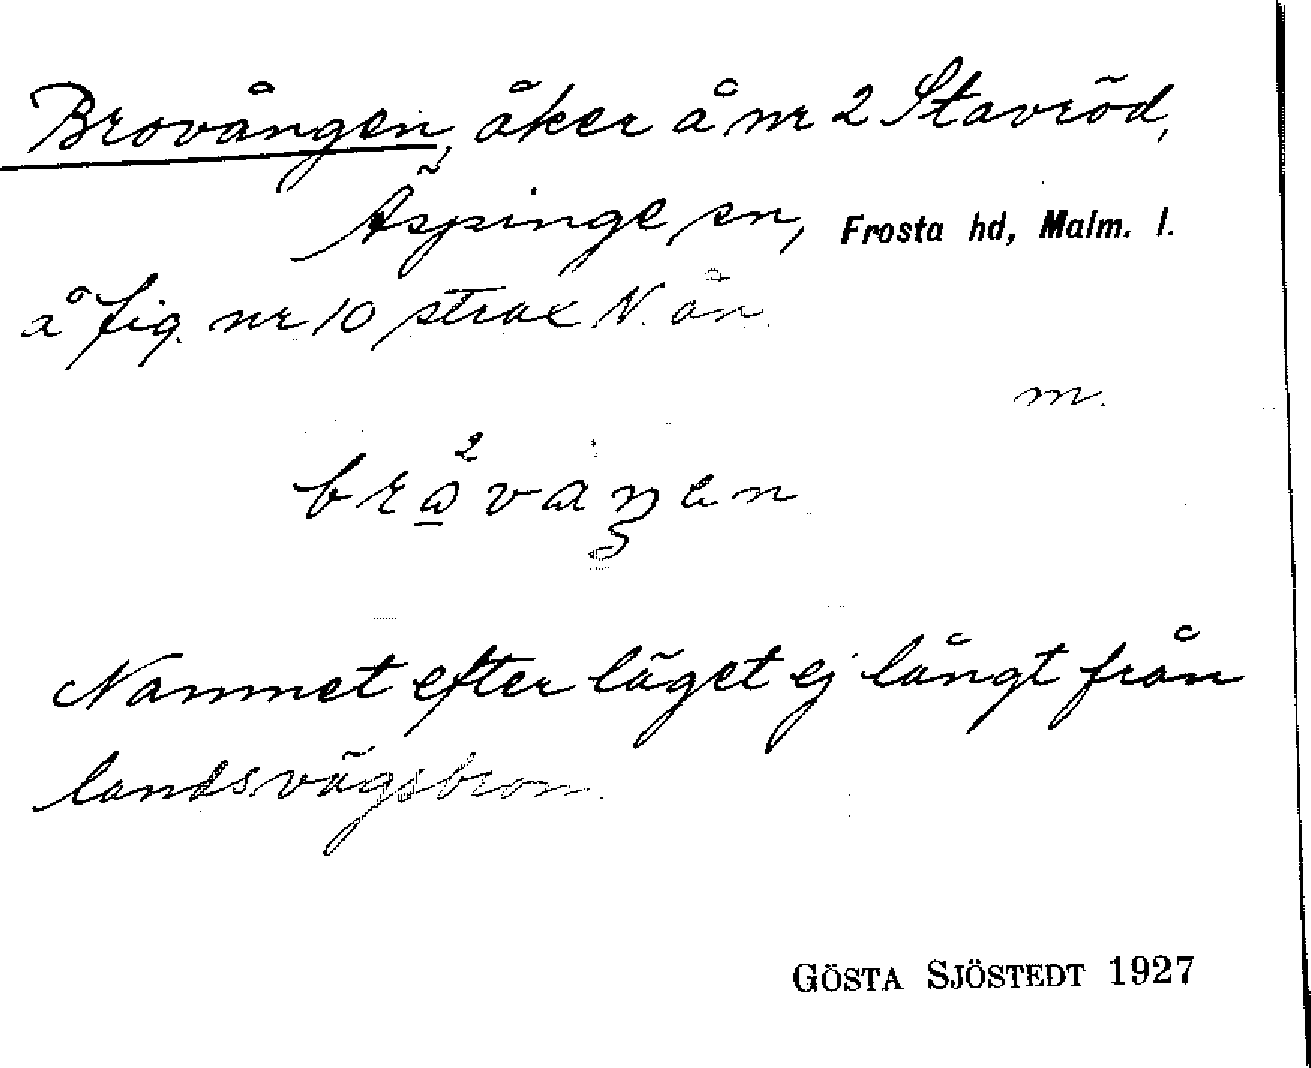 Brovången, åker å nr 2 Stavröd,
Äspinge sn, Frosta hd, Malm. l.
å fig. nr 10 strax N. ån.
m.
Namnet efter läget ej långt från
landsvägsbron.
GÖSTA SJÖSTEDT 1927